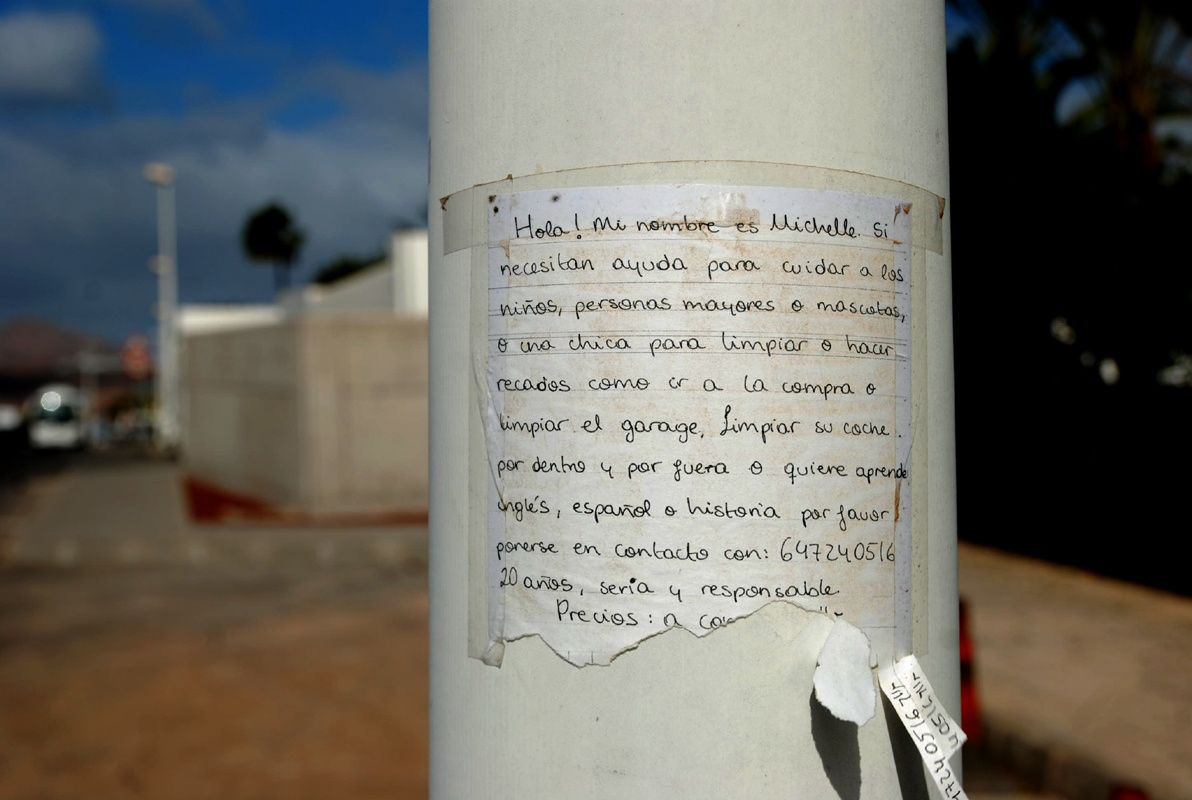 Hola! Mi nombre es Michelle. Si
necesitan ayuda para cuidar a los
niños, personas mayores o mascotas,
o una chica para limpiar o hacer
recados como ir a la compra o
limpiar el garage, limpiar su coche.
por dentro y por fuera o quiere aprende
inglés, español o historia por favor
ponerse en contacto con: 647240516
20 años, seria y responsable.
Precios: a